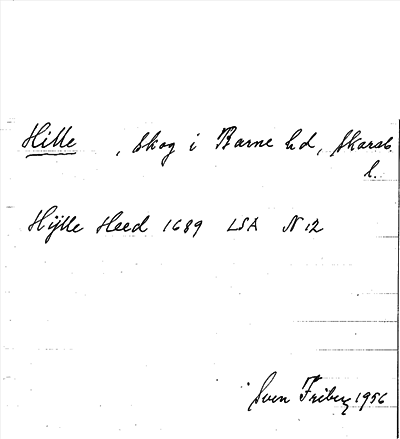 Hille , skog i Barne hd, Skarab.
l.
Hÿlle Heed 1689 LSA N 12
Sven Friberg 1956